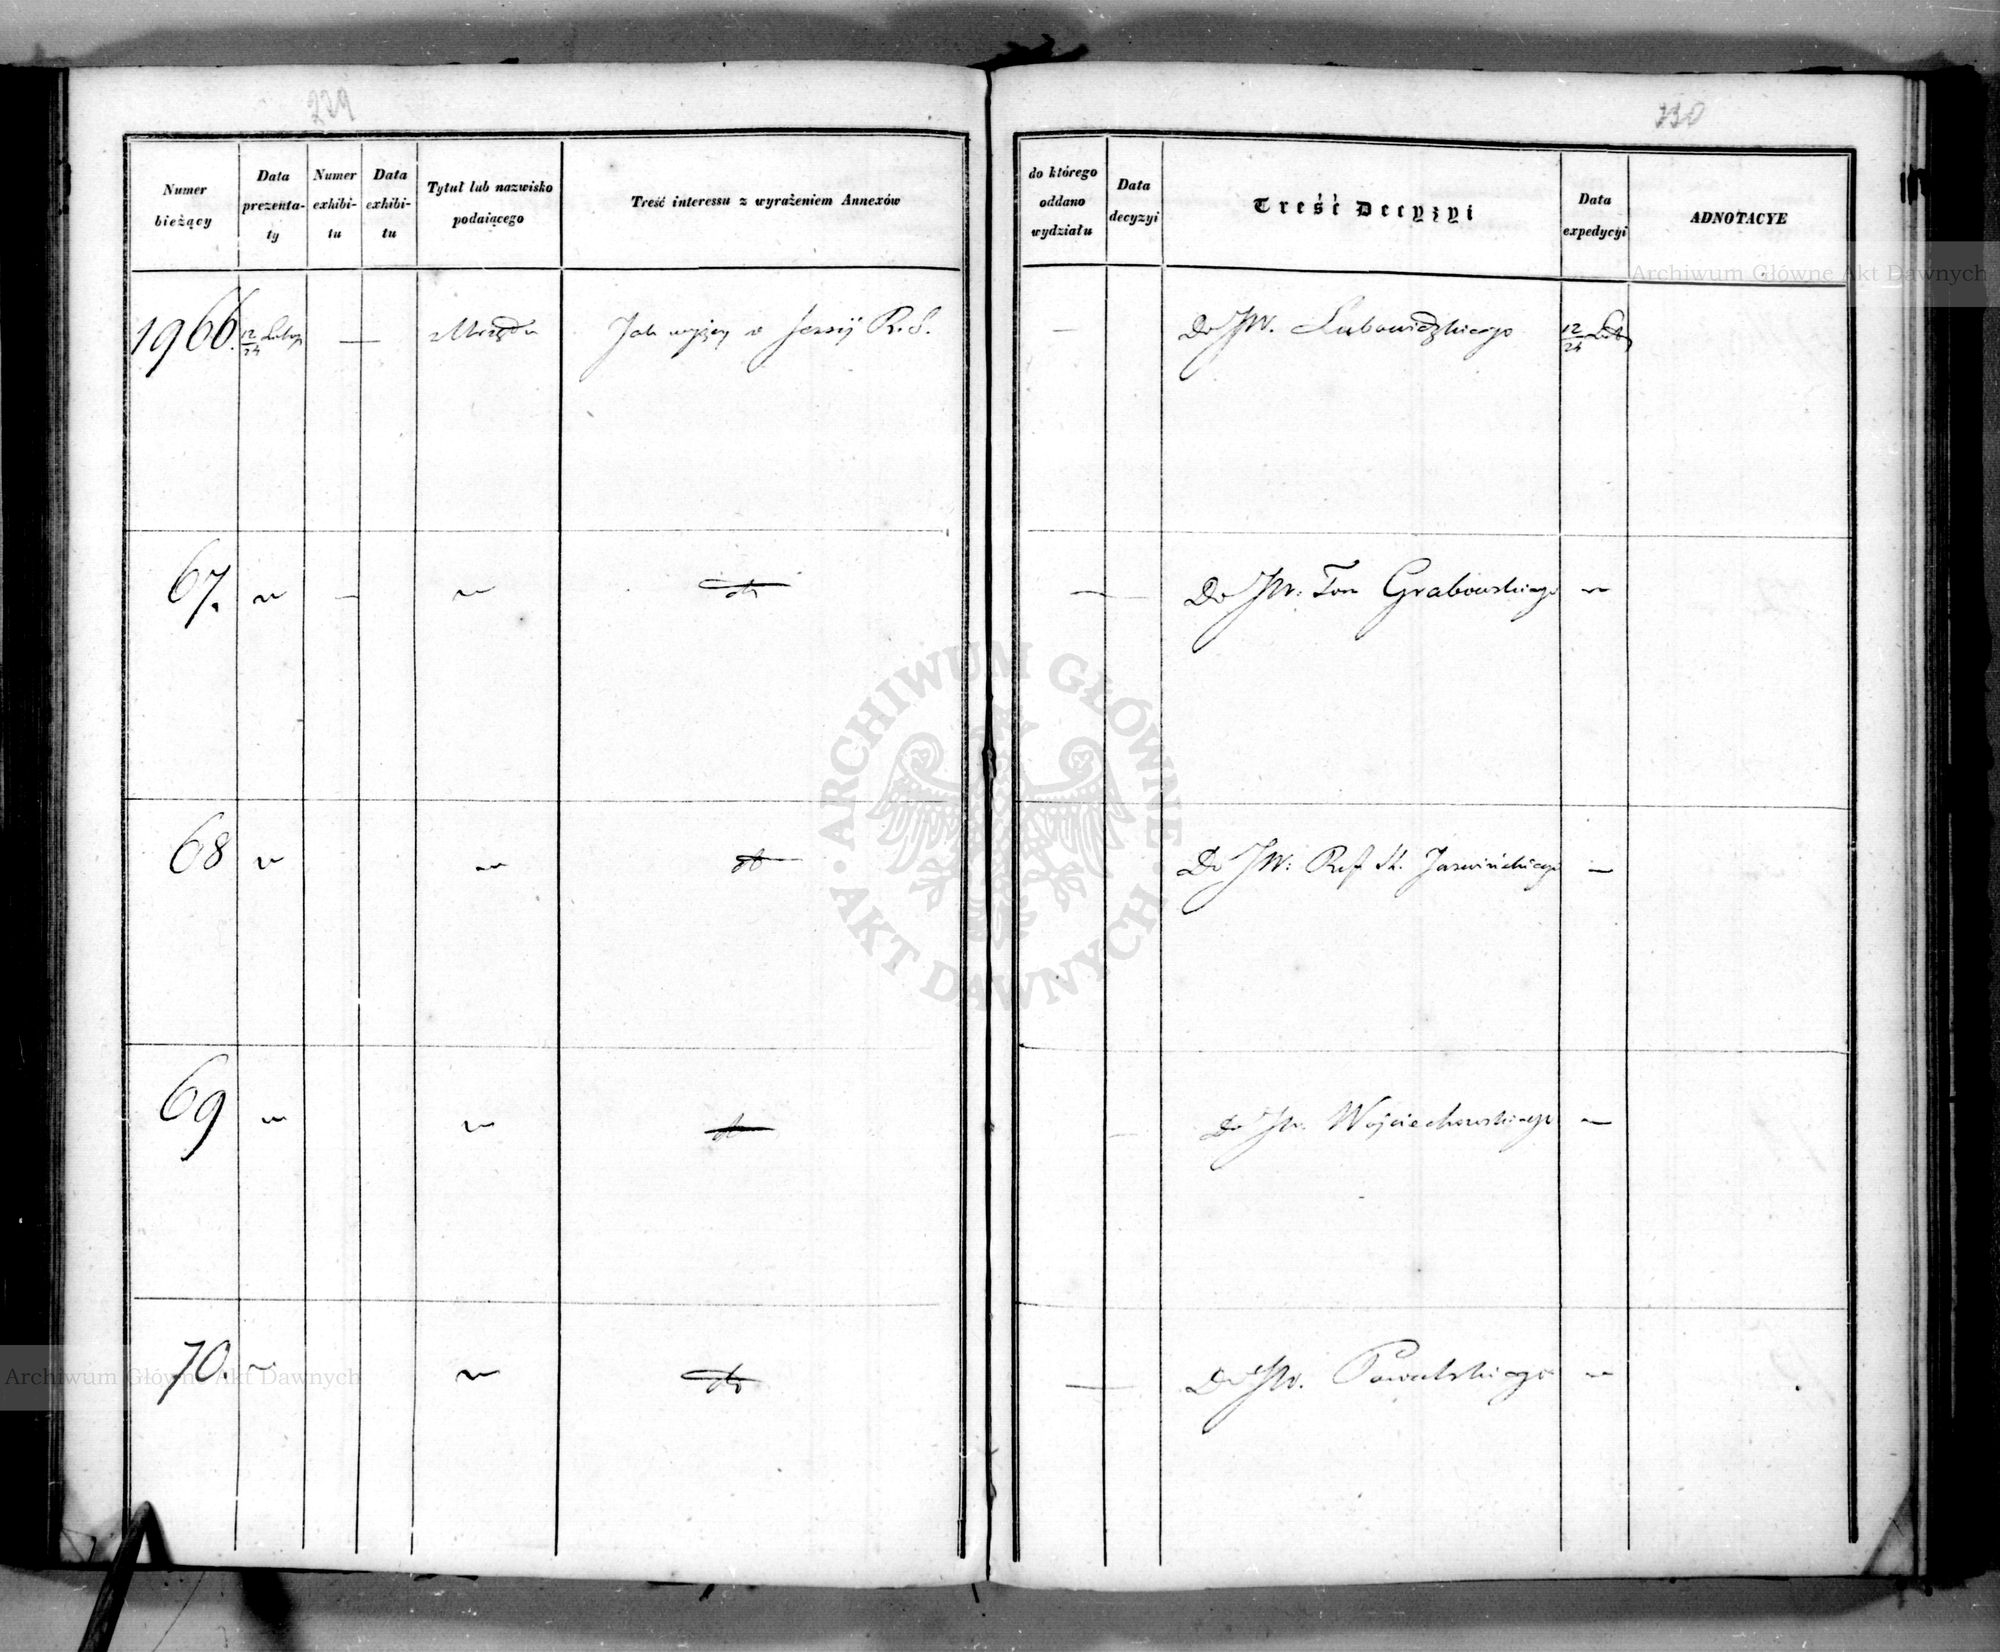 229
230
Numer bieżący
Data prezenta-ty
Numer exhibi-tu
Data exhibi-tu
Tytuł lub nazwisko podaiącego
Treść interessu z wyrażeniem Annexów
do którego oddano wydziału
Data decyzyi
Treść Decyzyi
Data expedycyi
ADNOTACYE
1966. 12/24 — z Urzędu Jak wyżej o Sessij R. S. — Do JW. Lubowidzkiego 12/24
67. — do — Do JW: Grabowskiego
68 do Do JW: Ref. St.
69 do Do JW. Wojciechowskiego
70. do — Do JW. Powalskiego
ARCHIWUM GŁÓWNE AKT DAWNYCH
Archiwum Główne Akt Dawnych
Archiwum Główne Akt Dawnych